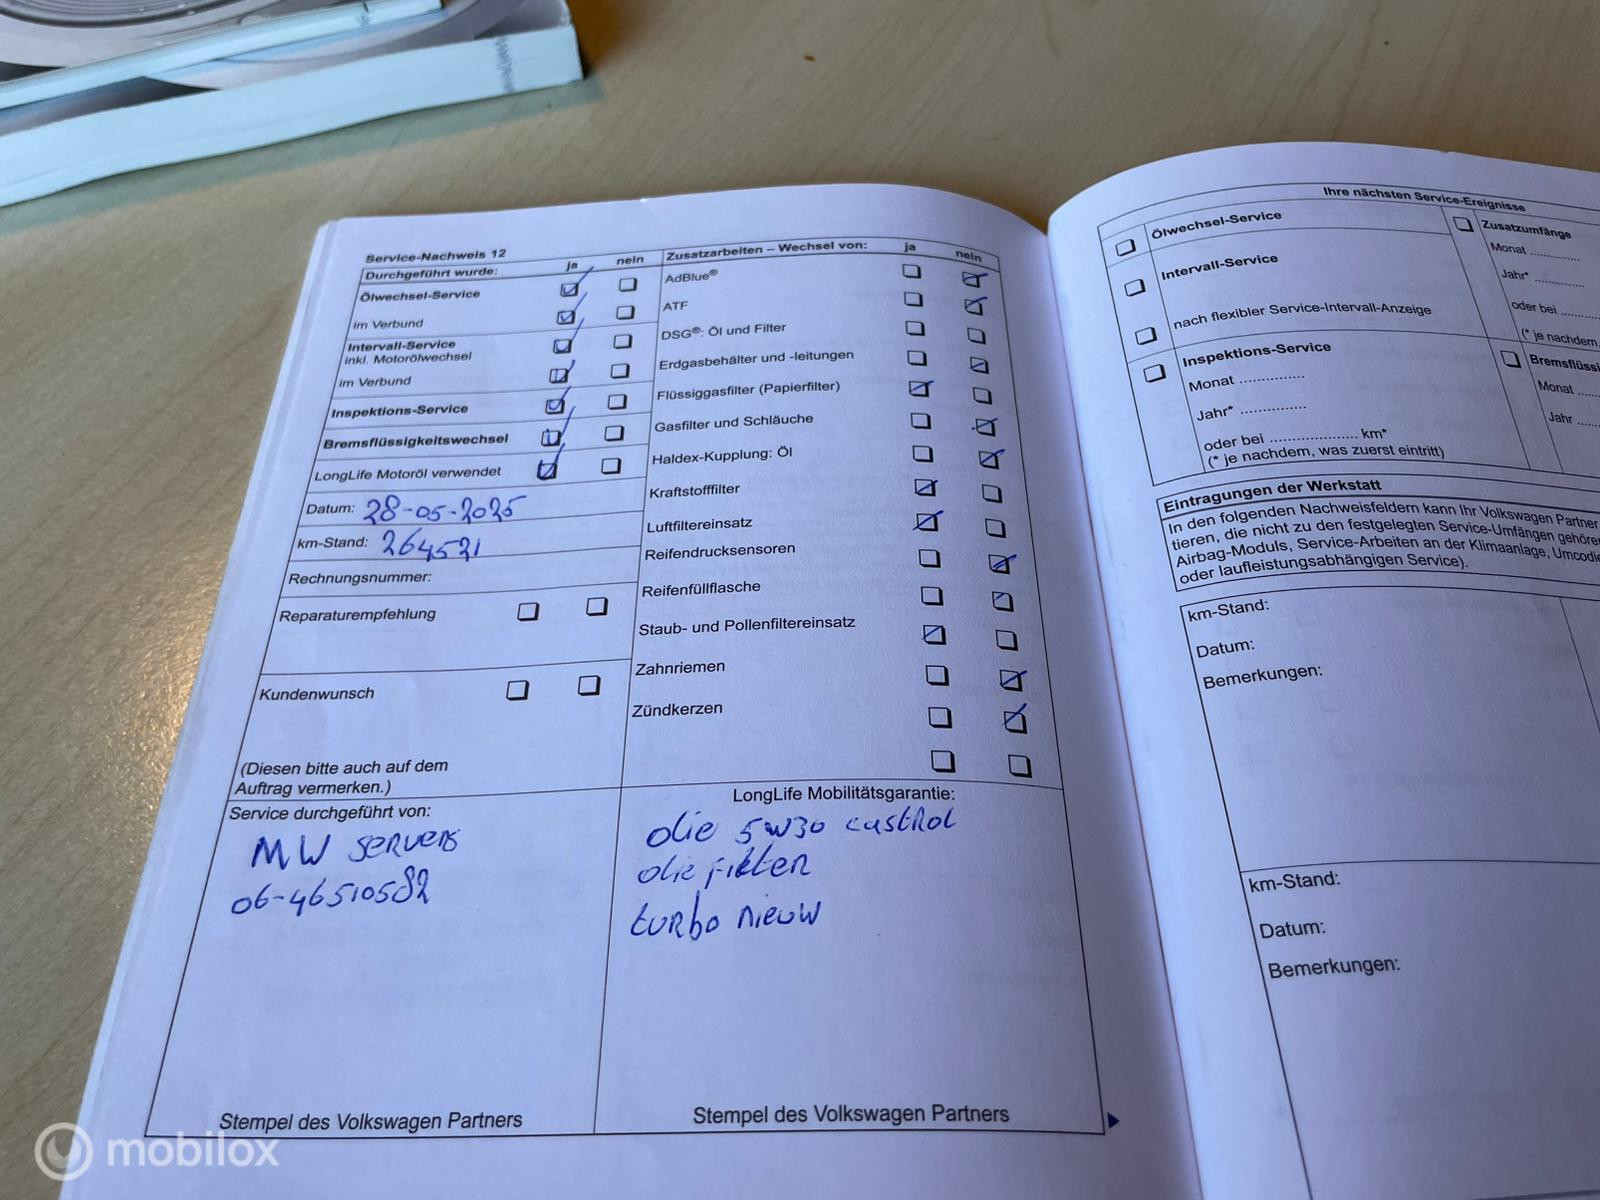 Service-Nachweis 12
Durchgeführt wurde: ja nein
Ölwechsel-Service
im Verbund
Intervall-Service
inkl. Motorölwechsel
im Verbund
Inspektions-Service
Bremsflüssigkeitswechsel
LongLife Motoröl verwendet
Datum: 28-05-2025
km-Stand: 264521
Rechnungsnummer:
Reparaturempfehlung
Kundenwunsch
(Diesen bitte auch auf dem
Auftrag vermerken.)
Service durchgeführt von:
MW servers
06-46510582
Stempel des Volkswagen Partners
Zusatzarbeiten – Wechsel von: ja nein
AdBlue®
ATF
DSG®: Öl und Filter
Erdgasbehälter und -leitungen
Flüssiggasfilter (Papierfilter)
Gasfilter und Schläuche
Haldex-Kupplung: Öl
Kraftstofffilter
Luftfiltereinsatz
Reifendrucksensoren
Reifenfüllflasche
Staub- und Pollenfiltereinsatz
Zahnriemen
Zündkerzen
LongLife Mobilitätsgarantie:
olie 5w30 castrol
olie filter
turbo nieuw
Stempel des Volkswagen Partners
Ihre nächsten Service-Ereignisse
Ölwechsel-Service
Intervall-Service
nach flexibler Service-Intervall-Anzeige
Inspektions-Service
Monat ...............
Jahr* ...............
oder bei .................... km*
(* je nachdem, was zuerst eintritt)
Zusatzumfänge
Monat ............
Jahr* ............
oder bei .........
(* je nachdem,
Monat
Jahr
Eintragungen der Werkstatt
In den folgenden Nachweisfeldern kann Ihr Volkswagen Partner
tieren, die nicht zu den festgelegten Service-Umfängen gehören
Airbag-Moduls, Service-Arbeiten an der Klimaanlage,
oder laufleistungsabhängigen Service).
km-Stand:
Datum:
Bemerkungen:
km-Stand:
Datum:
Bemerkungen:
mobilox